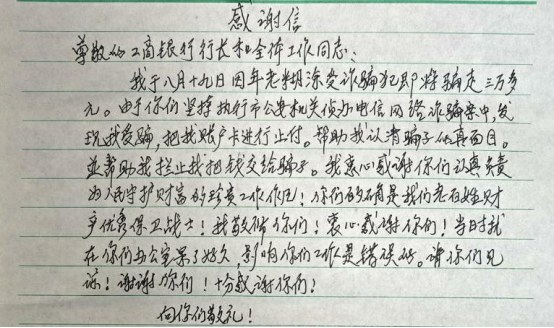 感谢信
尊敬的工商银行行长和全体工作同志：
我于八月十九日因年老糊涂受诈骗犯即将骗走三万多
元。由于你们坚持执行市公安机关侦办电信网络诈骗案中，发
现我受骗，把我账户卡进行止付。帮助我认清骗子的真面目。
并帮助我拦止我把钱交给骗子。我衷心感谢你们认真负责
为人民守护财富的珍贵工作作风！你们的确是我们老百姓财
产优秀保卫战士！我敬佩你们！衷心感谢你们！当时我
在你们办公室呆了好久 影响你们工作是错误的。请你们见
谅！谢谢你们！十分感谢你们！
向你们敬礼！